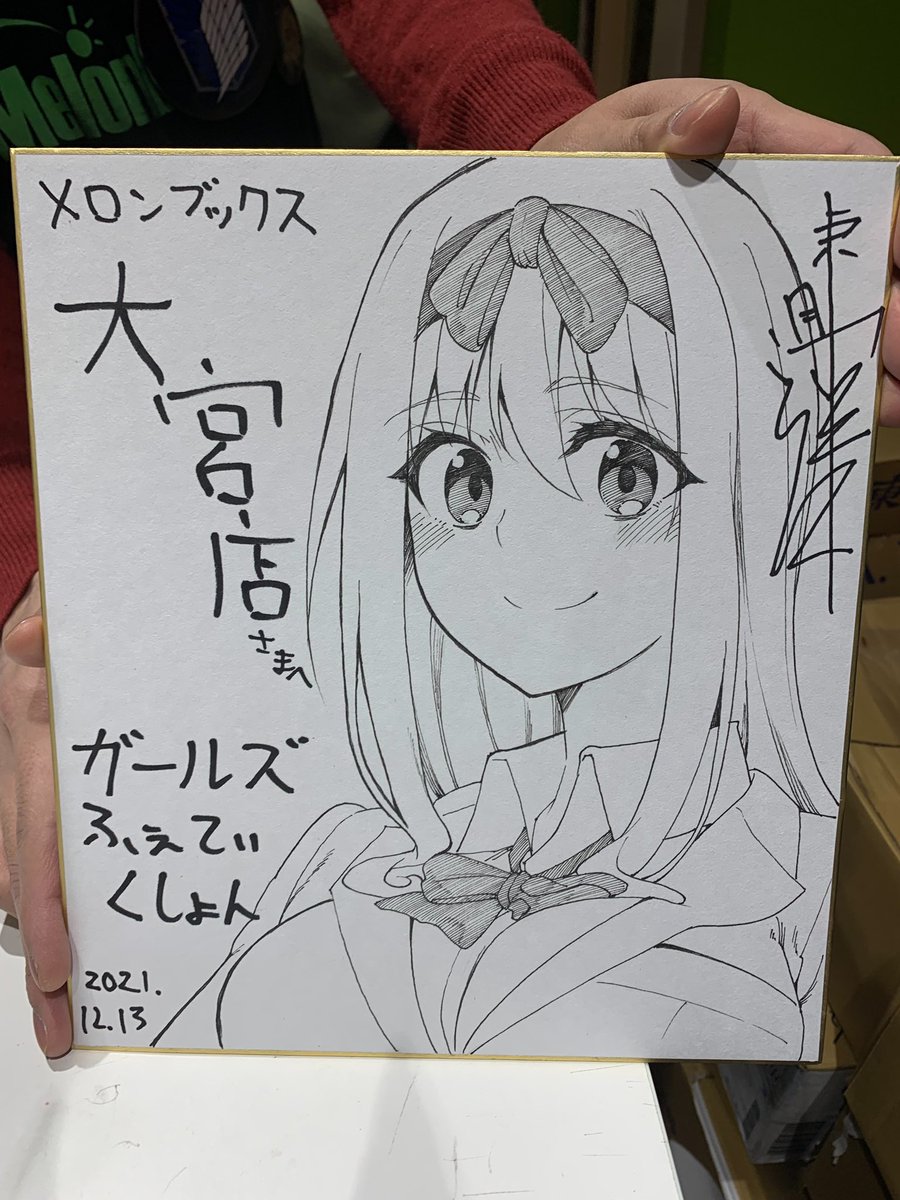 Melon
メロンブックス
大宮店
さまへ
ガールズ
ふぇてぃ
くしょん
2021.
12.13
東